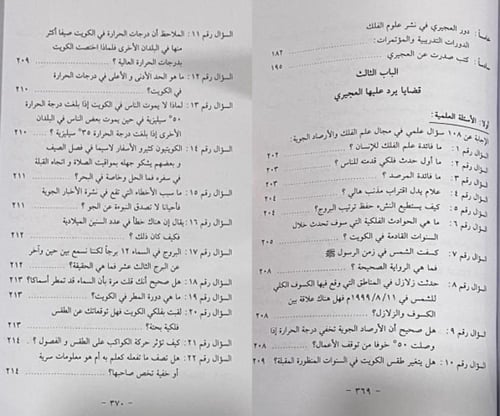 خامساً: دور العجيري في نشر علوم الفلك
الدورات التدريبية والمؤتمرات: ١٨٢
كتب صدرت عن العجيري ١٩٥
الباب الثالث
قضايا يرد عليها العجيري
أولا: الأسئلة العلمية:
الإجابة عن ١٠٨ سؤال علمي في مجال علم الفلك والأرصاد الجوية:
السؤال رقم ١: ما فائدة علم الفلك للإنسان؟ ٢٠٢
السؤال رقم ٢: ما أول حدث فلكي قدمته للناس؟ ٢٠٣
السؤال رقم ٣: ما فائدة المرصد؟ ٢٠٣
السؤال رقم ٤: علام يدل اقتراب مذنب هالي؟ ٢٠٤
السؤال رقم ٥: كيف يستطيع النشء حفظ ترتيب البروج؟ ٢٠٤
السؤال رقم ٦: ما هي الحوادث الفلكية التي سوف تحدث خلال
السنوات القادمة في الكويت؟ ٢٠٥
السؤال رقم ٧: كسفت الشمس في زمن الرسول ﷺ
فما هي الرواية الصحيحة؟ ٢٠٨
السؤال رقم ٨: حدثت زلازل في المناطق التي وقع فيها الكسوف الكلي
للشمس في ١٩٩٩/٨/١١م فهل هناك علاقة بين
الكسوف والزلازل؟ ٢٠٨
السؤال رقم ٩: هل صحيح أن الأرصاد الجوية تخفي درجة الحرارة إذا
وصلت ٥٠° خوفا من توقف الأعمال؟ ٢٠٨
السؤال رقم ١٠: هل يتغير طقس الكويت في السنوات المنظورة المقبلة؟ ٢٠٩
- ٣٦٩ -
السؤال رقم ١١: الملاحظ أن درجات الحرارة في الكويت صيفا أكثر
منها في البلدان الأخرى فلماذا اختصت الكويت
بدرجات الحرارة العالية؟ ٢٠٩
السؤال رقم ١٢: ما هو الحد الأدنى و الأعلى في درجات الحرارة
في الكويت؟ ٢١٠
السؤال رقم ١٣: لماذا لا يموت الناس في الكويت إذا بلغت درجة الحرارة
٥٠° سيليزية في حين يموت بعض الناس في البلدان
الأخرى إذا بلغت درجة الحرارة ٣٥° سيليزية؟ ٢١٠
السؤال رقم ١٤: الكويتيون كثيرو الأسفار لاسيما في فصل الصيف
و بعضهم يشكو جهله بمواقيت الصلاة و اتجاه القبلة
في سفره فما الحل وخاصة في البحر؟ ٢١١
السؤال رقم ١٥: ما سبب الأخطاء التي تقع في نشرة الأخبار الجوية
فأحيانا لا تصدق النبوءة عن الجو؟ ٢١١
السؤال رقم ١٦: يقال إن هناك خطأ في عدد السنين الميلادية
فكيف كان ذلك؟ ٢١٢
السؤال رقم ١٧: البروج في السماء ١٢ برجاً لكننا نسمع بين حين وآخر
عن البرج الثالث عشر فما هي الحقيقة؟ ٢١٢
السؤال رقم ١٨: هل صحيح أنك قلت مرة بأن السماء قد تمطر أسماكا؟ ٢١٣
السؤال رقم ١٩: ما هي دورة المطر في الكويت؟ ٢١٣
السؤال رقم ٢٠: لقبت بفلكي الكويت فهل توقعاتك عن الطقس
فلكية بحتة؟ ٢١٣
السؤال رقم ٢١: كيف تؤثر حركة الكواكب على الطقس و الفصول؟ ٢١٤
السؤال رقم ٢٢: هل تصف ما تفعله كعلم به أم هو معلومات سرية
أو خفية تخص صاحبها؟ ٢١٤
- ٣٧٠ -